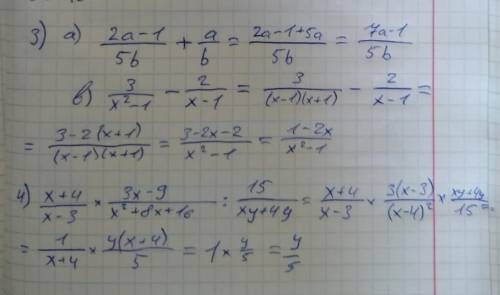 3) а) (2a-1)/(5b) + a/b = (2a-1+5a)/(5b) = (7a-1)/(5b)
в) 3/(x²-1) - 2/(x-1) = 3/((x-1)(x+1)) - 2/(x-1) =
= (3-2(x+1))/((x-1)(x+1)) = (3-2x-2)/(x²-1) = (1-2x)/(x²-1)
4) (x+4)/(x-3) × (3x-9)/(x²+8x+16) : 15/(xy+4y) = (x+4)/(x-3) × 3(x-3)/(x-4)² × (xy+4y)/15 =
= 1/(x+4) × y(x+4)/5 = 1 × y/5 = y/5